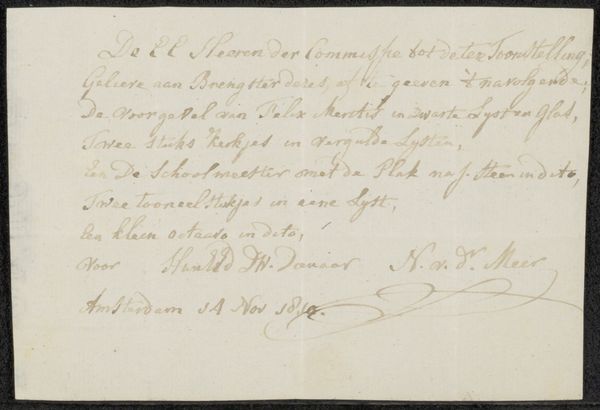 De EE Heeren der Commissie tot de ten Toonstelling,
Geliere aan Brengster dezes, af te geeven 't navolgende;
De voorgevel van Felix Meritis in zwarte Lyst en Glas,
Twee stuks Kerkjes in vergulde Lysten,
Een De Schoolmeester met de Plak na J. Steen in dito,
Twee tooneelstukjes in eene Lyst,
Een klein octaavo in dito,
voor Hun Ed DW. Dienaar N. v. dr. Meer
Amsterdam 14 Nov 1810.